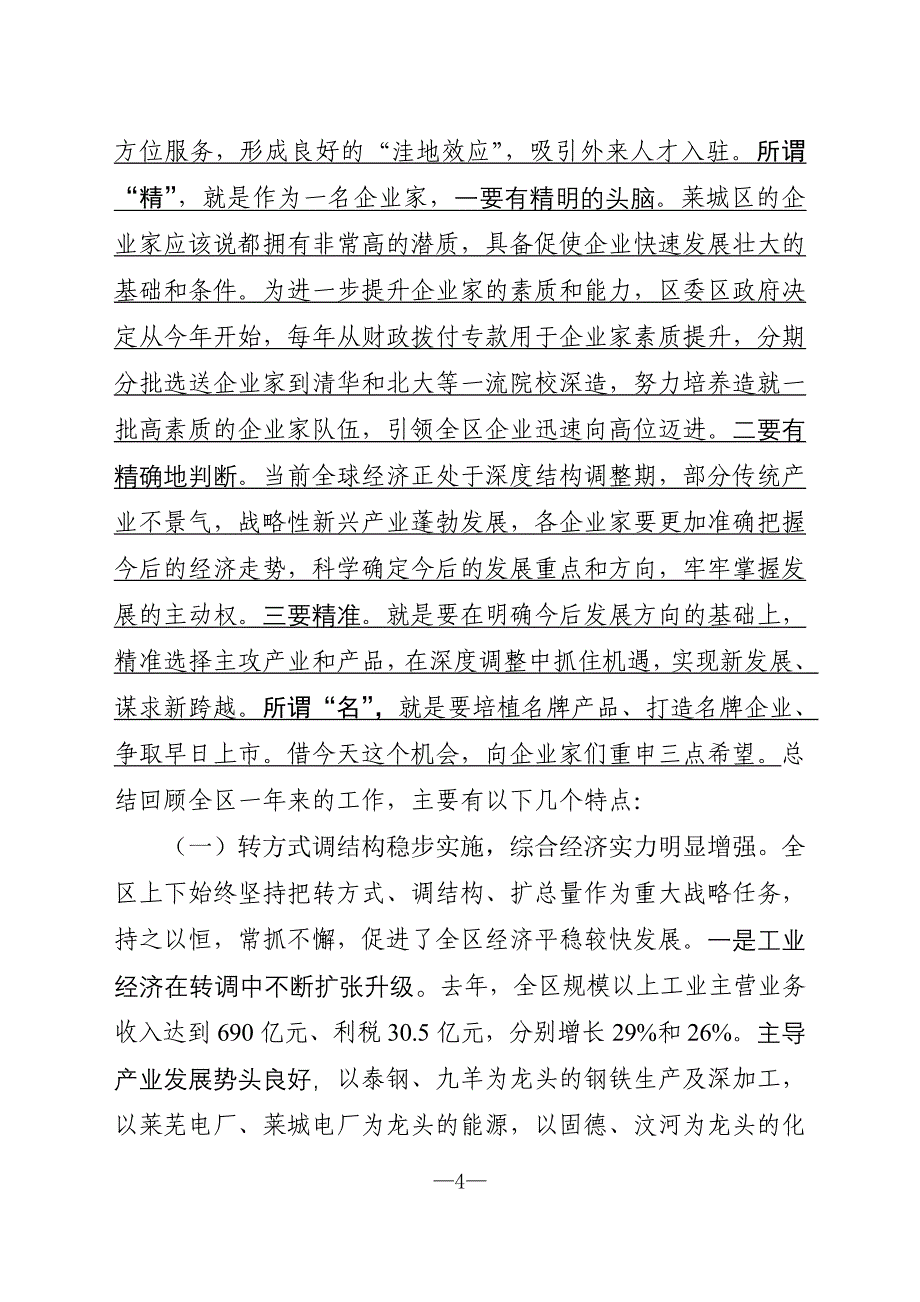 方位服务，形成良好的“洼地效应”，吸引外来人才入驻。所谓
“精”，就是作为一名企业家，一要有精明的头脑。莱城区的企
业家应该说都拥有非常高的潜质，具备促使企业快速发展壮大的
基础和条件。为进一步提升企业家的素质和能力，区委区政府决
定从今年开始，每年从财政拨付专款用于企业家素质提升，分期
分批选送企业家到清华和北大等一流院校深造，努力培养造就一
批高素质的企业家队伍，引领全区企业迅速向高位迈进。二要有
精确地判断。当前全球经济正处于深度结构调整期，部分传统产
业不景气，战略性新兴产业蓬勃发展，各企业家要更加准确把握
今后的经济走势，科学确定今后的发展重点和方向，牢牢掌握发
展的主动权。三要精准。就是要在明确今后发展方向的基础上，
精准选择主攻产业和产品，在深度调整中抓住机遇，实现新发展、
谋求新跨越。所谓“名”，就是要培植名牌产品、打造名牌企业、
争取早日上市。借今天这个机会，向企业家们重申三点希望。总
结回顾全区一年来的工作，主要有以下几个特点：
（一）转方式调结构稳步实施，综合经济实力明显增强。全
区上下始终坚持把转方式、调结构、扩总量作为重大战略任务，
持之以恒，常抓不懈，促进了全区经济平稳较快发展。一是工业
经济在转调中不断扩张升级。去年，全区规模以上工业主营业务
收入达到 690 亿元、利税 30.5 亿元，分别增长 29%和 26%。主导
产业发展势头良好，以泰钢、九羊为龙头的钢铁生产及深加工，
以莱芜电厂、莱城电厂为龙头的能源，以固德、汶河为龙头的化
—4—